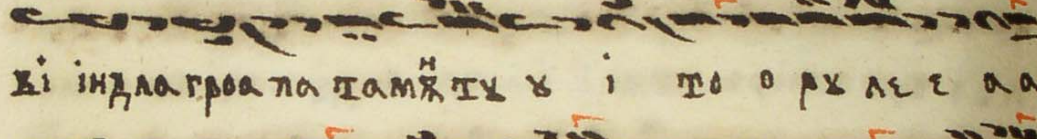 ві індла гроа па тамѫⷩтꙋ ꙋ і то о рꙋ лε ε а а